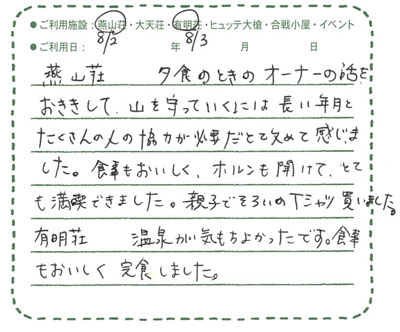 ●ご利用施設：燕山荘・大天荘・有明荘・ヒュッテ大槍・合戦小屋・イベント
8/2 8/3
●ご利用日： 年 月 日
燕山荘 夕食のときのオーナーの話を
おききして、山を守っていくには長い年月と
たくさんの人の協力が必要だと改めて感じま
した。食事もおいしく、ホルンも聞けて、とて
も満喫できました。親子でそろいのTシャツ買いました。
有明荘 温泉が気もちよかったです。食事
もおいしく完食しました。